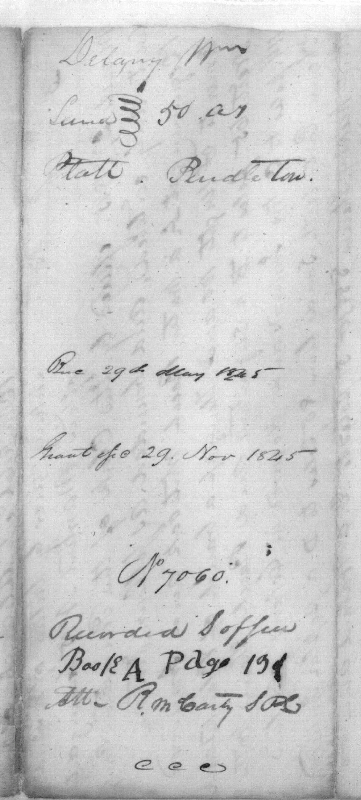 Delany Wm
50 as
Platt Pendleton.
Rec 29th May 1845
Grant ofc 29. Nov 1845
No 7060.
Recorded S office
Book A Page 191
Att- R. McCarty
ccc